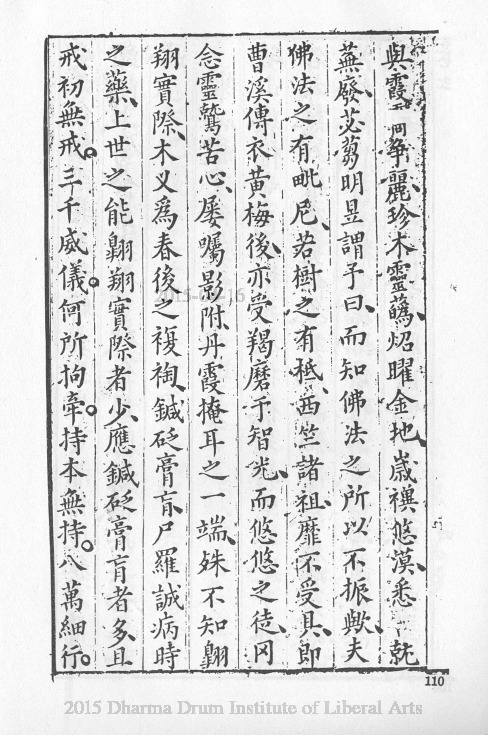 與霞⺩問爭麗珍木靈蘤炤曜金地歲禩悠漠悉就
蕪廢苾蒭明昱謂予曰而知佛法之所以不振歟夫
佛法之有毗尼若樹之有柢西竺諸祖靡不受具即
曹溪傳衣黃梅後亦受羯磨于智光而悠悠之徒冈
念靈鷲苦心屡囑影附丹霞掩耳之一端殊不知翺
翔實際木义為春後之複裪鍼砭膏肓尸羅誠病時
之藥上世之能翺翔實際者少應鍼砭膏肓者多且
戒初無戒。三千威儀。何所拘牽。持本無持。八萬細行。
110
2015-09-16
2015 Dharma Drum Institute of Liberal Arts